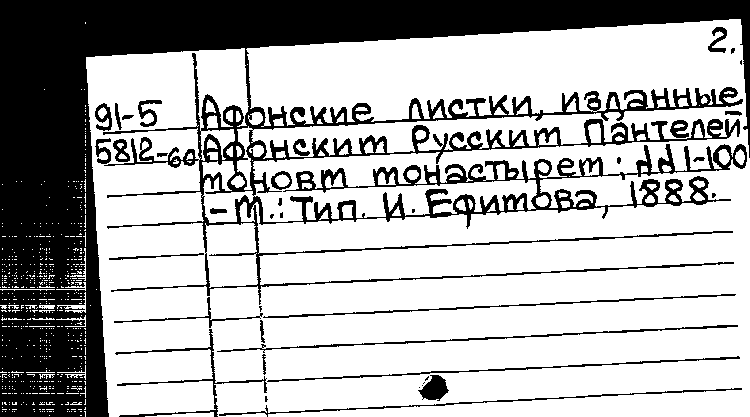 2.
91-5 Афонские листки, изданные
5812-60 Афонским Русским Пантелей-
моновым монастырем; №№ 1-100
.- М.: Тип. И. Ефимова, 1888.